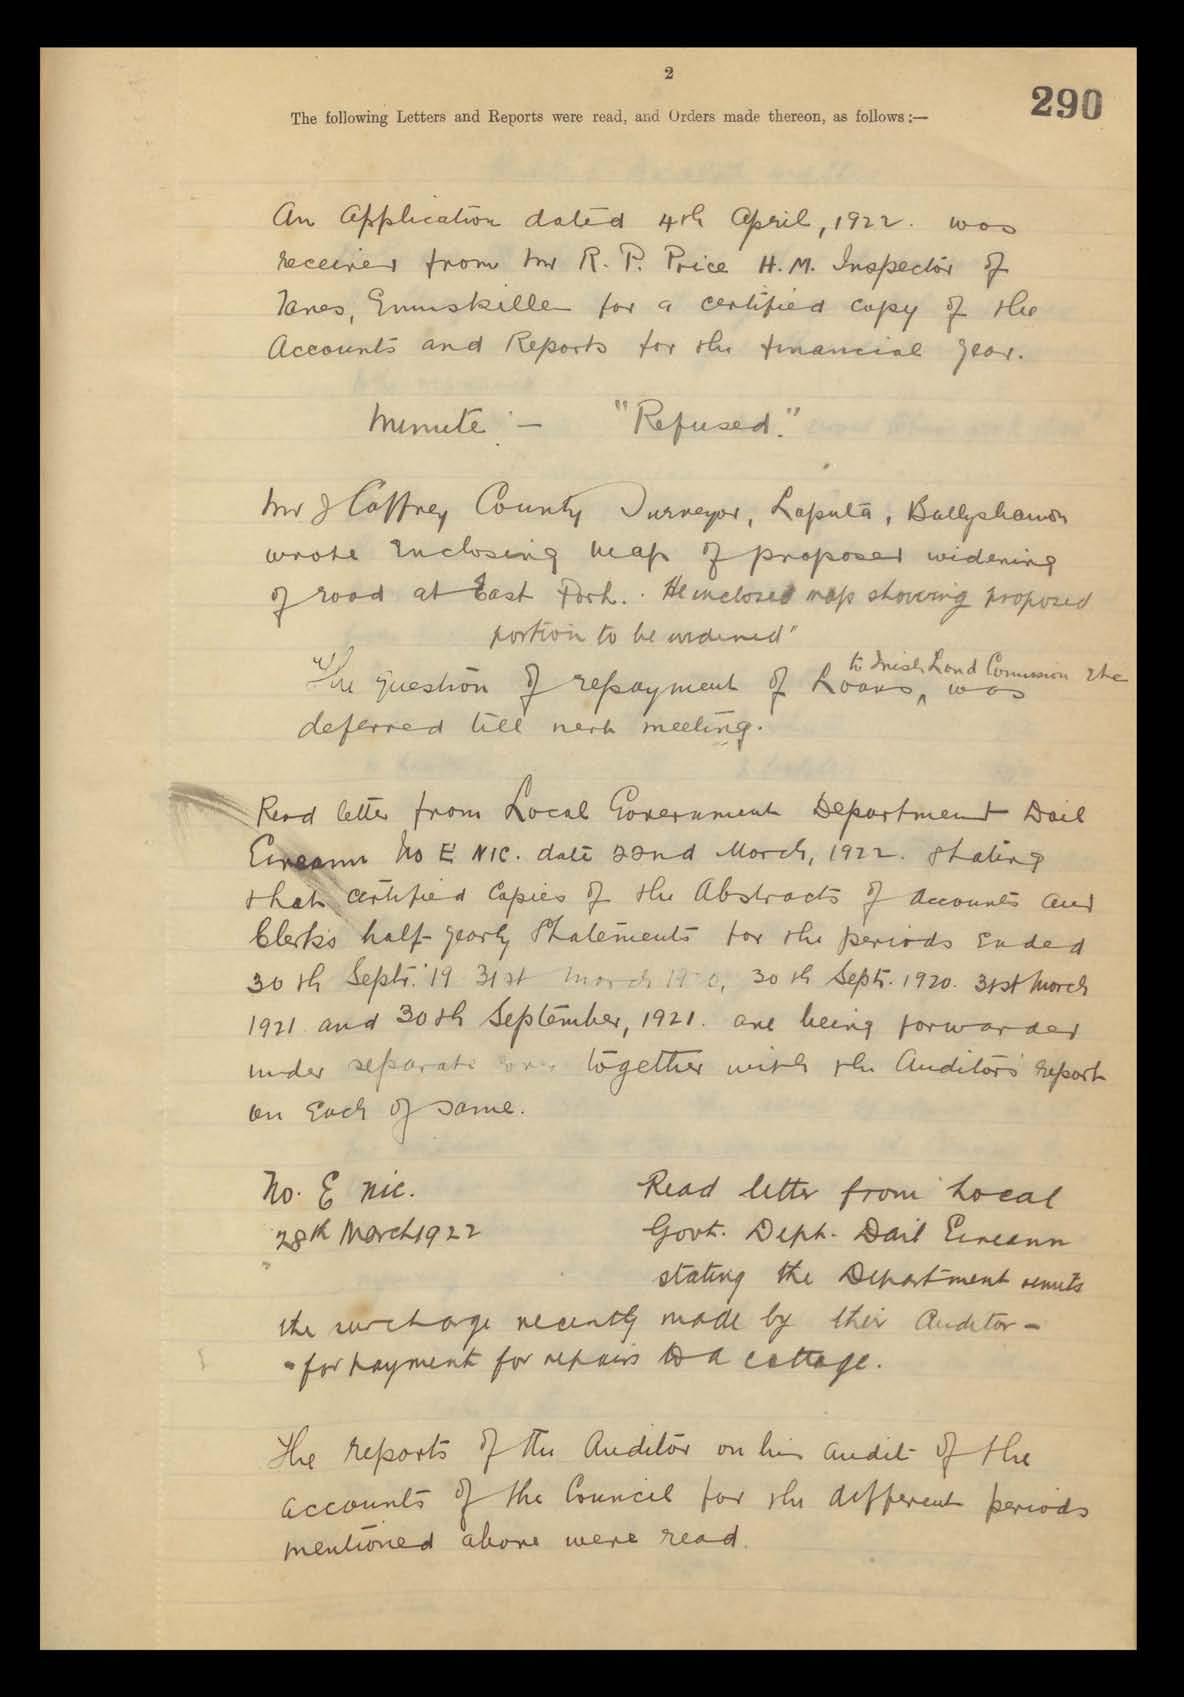 2
290
The following Letters and Reports were read, and Orders made thereon, as follows :—
An Application dated 4th April, 1922. was
received from Mr R. P. Price H.M. Inspector of
Taxes, Enniskillen for a certified copy of the
Accounts and Reports for the financial year.
Minute :— "Refused."
Mr J Caffrey County Surveyor, Laputa, Ballyshannon
wrote enclosing map of proposed widening
of road at East Port. He inclosed map showing proposed
portion to be widened"
to Irish Land Comission etc
The question of repayment of Loans, was
deferred till next meeting.
Read letter from Local Government Department Dail
Eireann No E NIC. date 22nd March, 1922. stating
that certified Copies of the Abstracts of Accounts and
Clerks half yearly Statements for the periods ended
30th Septr. '19 31st March 1920, 30th Septr. 1920. 31st March
1921 and 30th September, 1921. are being forwarded
under separate cover together with the Auditors' report
on each of same.
No. E NIC.
28th March 1922
Read letter from Local
Govt. Dept. Dail Eireann
stating the Department remits
the surcharge recently made by their Auditor -
for payment for repairs to a cottage.
The reports of the Auditor on his audit of the
accounts of the Council for the different periods
mentioned above were read.